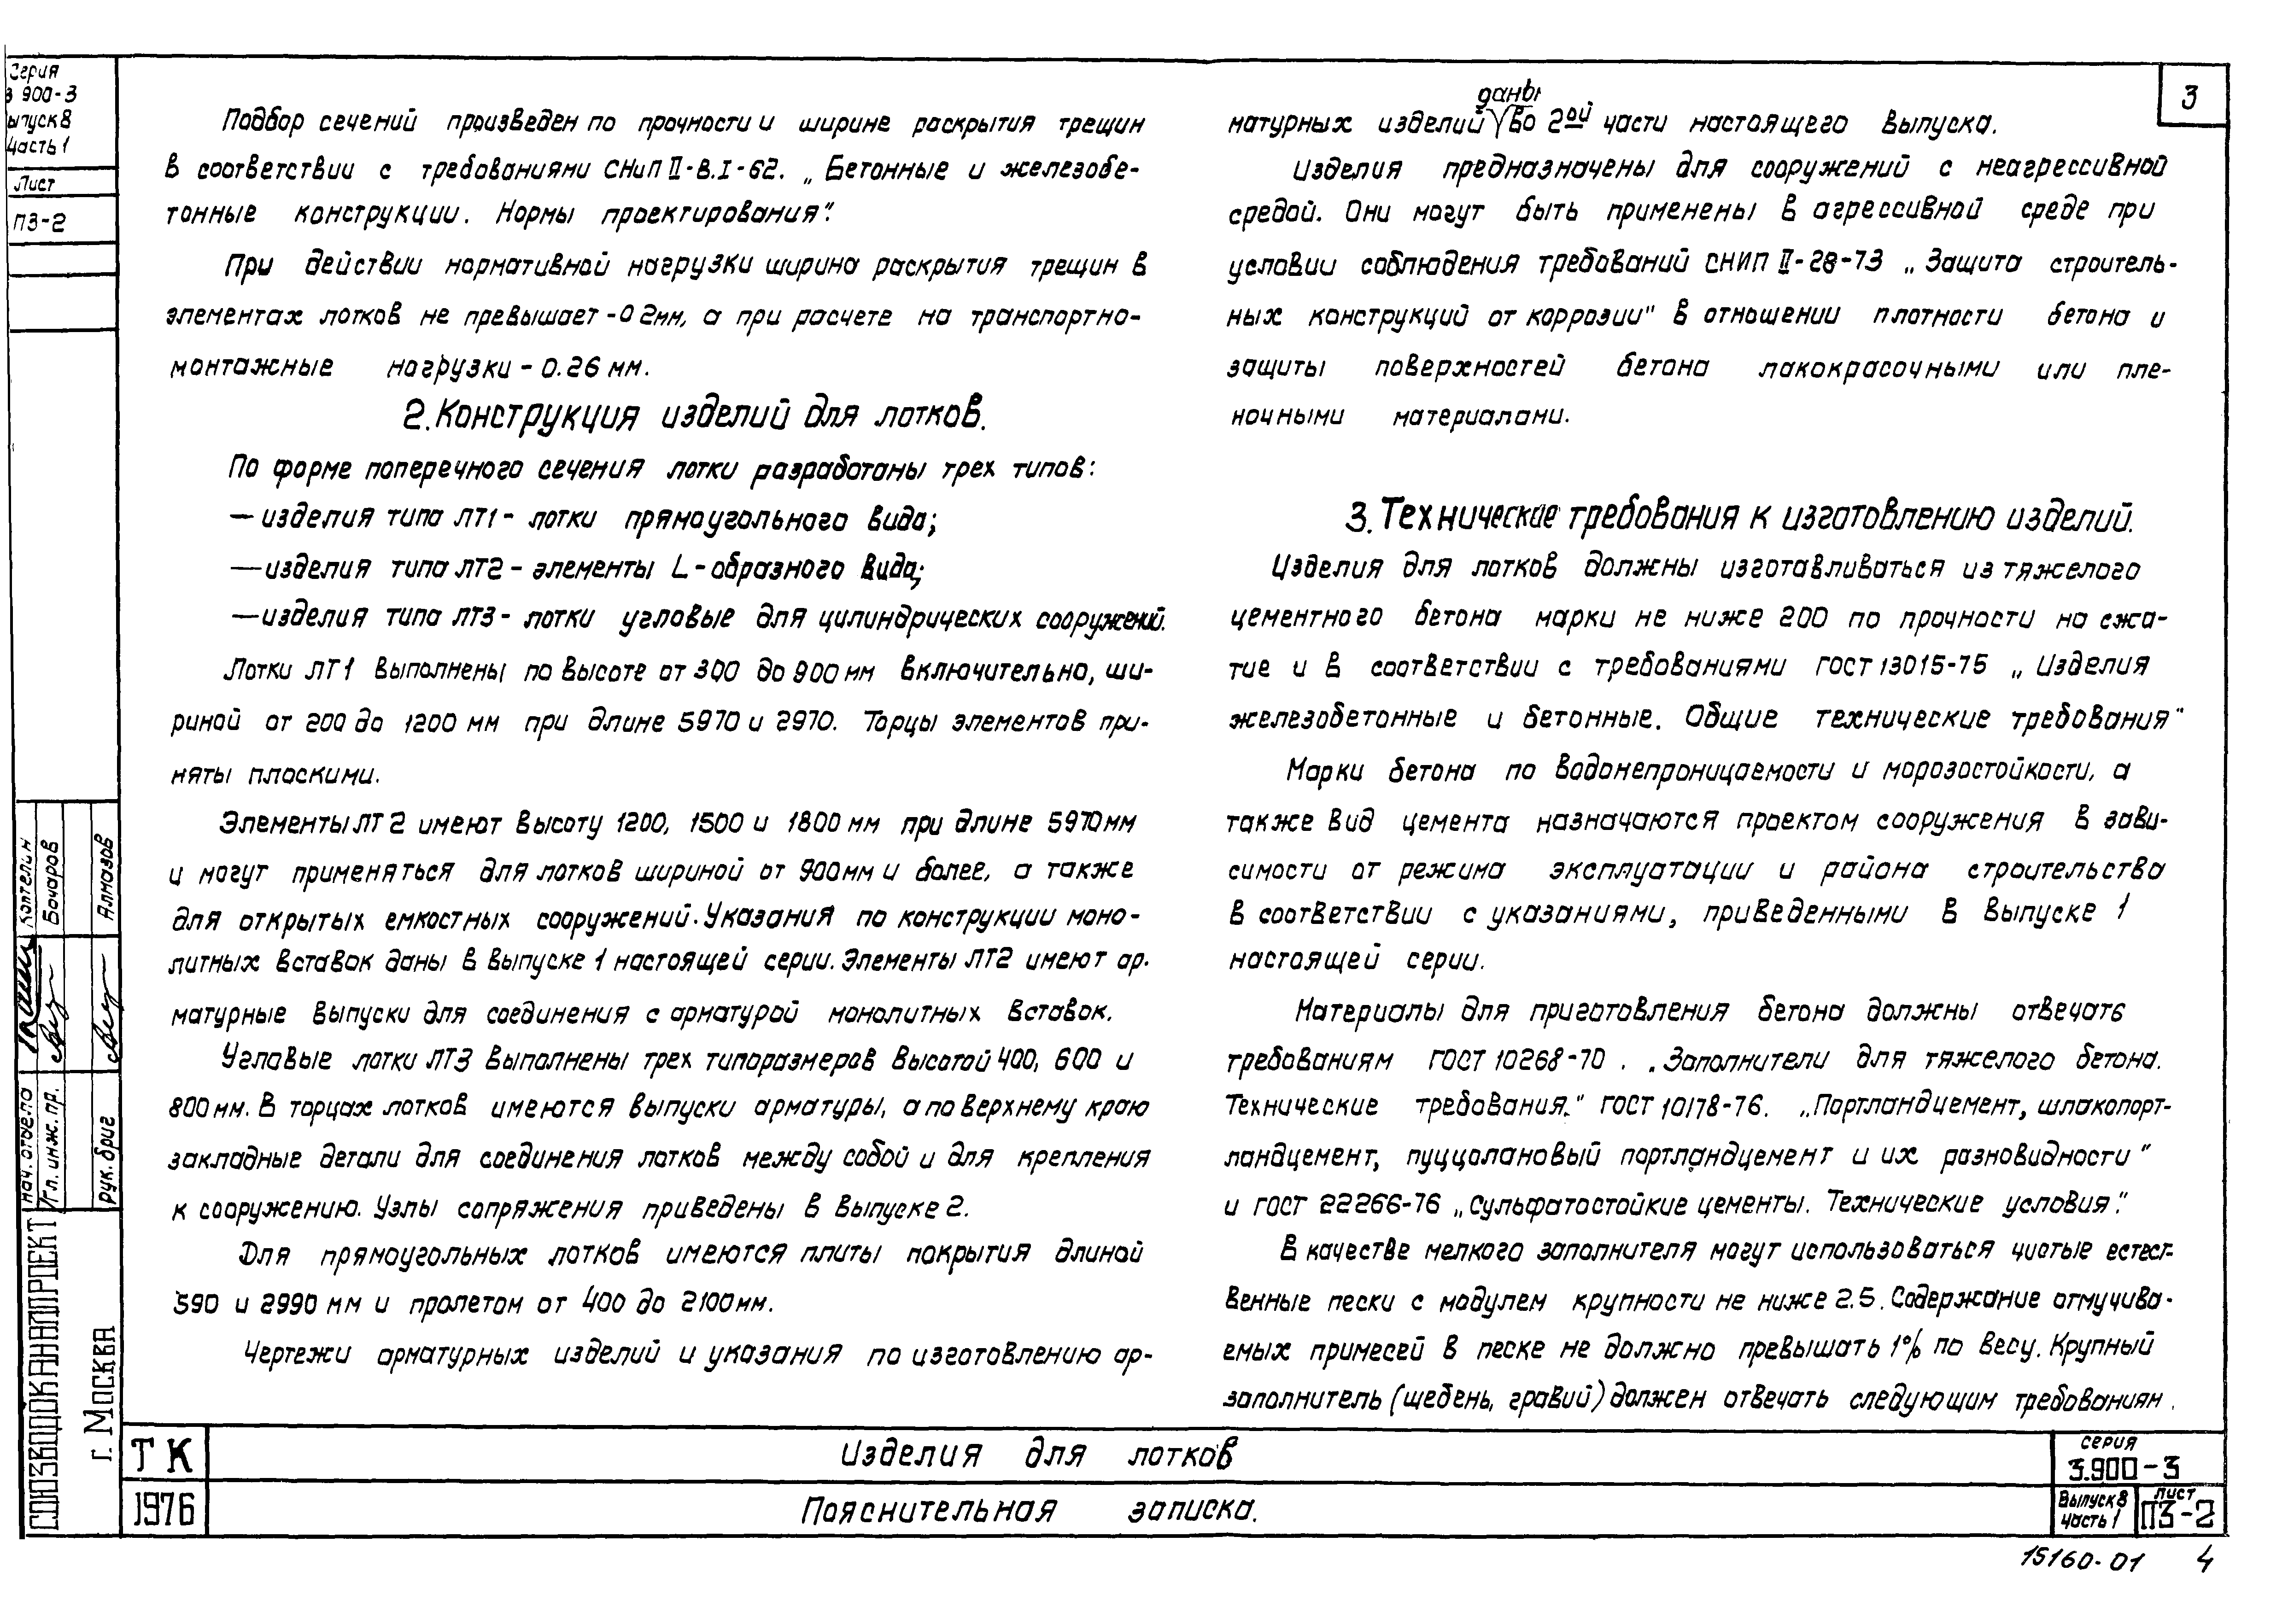 Серия
3 900-3
ыпуск 8
Часть 1
Лист
ПЗ-2
3
Подбор сечений произведен по прочности и ширине раскрытия трещин
в соответствии с требованиями СНиП II-В.I-62. „Бетонные и железобе-
тонные конструкции. Нормы проектирования".
При действии нормативной нагрузки ширина раскрытия трещин в
элементах лотков не превышает - 0 2мм, а при расчете на транспортно-
монтажные нагрузки - 0.26 мм.
2. Конструкция изделий для лотков.
По форме поперечного сечения лотки разработаны трех типов:
— изделия типа ЛТ1 - лотки прямоугольного вида;
— изделия типа ЛТ2 - элементы L-образного вида;
— изделия типа ЛТ3 - лотки угловые для цилиндрических сооружений.
Лотки ЛТ1 выполнены по высоте от 300 до 900 мм включительно, ши-
риной от 200 до 1200 мм при длине 5970 и 2970. Торцы элементов при-
няты плоскими.
Элементы ЛТ2 имеют высоту 1200, 1500 и 1800 мм при длине 5970мм
и могут применяться для лотков шириной от 900мм и более, а также
для открытых емкостных сооружений. Указания по конструкции моно-
литных вставок даны в выпуске 1 настоящей серии. Элементы ЛТ2 имеют ар-
матурные выпуски для соединения с арматурой монолитных вставок.
Угловые лотки ЛТ3 выполнены трех типоразмеров высотой 400, 600 и
800 мм. В торцах лотков имеются выпуски арматуры, а по верхнему краю
закладные детали для соединения лотков между собой и для крепления
к сооружению. Узлы сопряжения приведены в выпуске 2.
Для прямоугольных лотков имеются плиты покрытия длиной
590 и 2990 мм и пролетом от 400 до 2100мм.
Чертежи арматурных изделий и указания по изготовлению ар-
даны
матурных изделий во 2ой части настоящего выпуска.
Изделия предназначены для сооружений с неагрессивной
средой. Они могут быть применены в агрессивной среде при
условии соблюдения требований СНИП II-28-73 „Защита строитель-
ных конструкций от коррозии" в отношении плотности бетона и
защиты поверхностей бетона лакокрасочными или пле-
ночными материалами.
3. Технические требования к изготовлению изделий.
Изделия для лотков должны изготавливаться из тяжелого
цементного бетона марки не ниже 200 по прочности на сжа-
тие и в соответствии с требованиями ГОСТ 13015-75 „Изделия
железобетонные и бетонные. Общие технические требования"
Марки бетона по водонепроницаемости и морозостойкости, а
также вид цемента назначаются проектом сооружения в зави-
симости от режима эксплуатации и района строительства
в соответствии с указаниями, приведенными в выпуске 1
настоящей серии.
Материалы для приготовления бетона должны отвечать
требованиям ГОСТ 10268-70 . „Заполнители для тяжелого бетона.
Технические требования." ГОСТ 10178-76. „Портландцемент, шлакопорт-
ландцемент, пуццолановый портландцемент и их разновидности"
и ГОСТ 22266-76 „Сульфатостойкие цементы. Технические условия".
В качестве мелкого заполнителя могут использоваться чистые естест-
венные пески с модулем крупности не ниже 2.5. Содержание отмучива-
емых примесей в песке не должно превышать 1% по весу. Крупный
заполнитель (щебень, гравий) должен отвечать следующим требованиям.
Нач. отдела Коптелин
Гл. инж. пр. Бочаров
рук. бриг Алмазов
СОЮЗВОДОКАНАЛПРОЕКТ
г. Москва
ТК
1976
Изделия для лотков
Пояснительная записка.
серия
3.900-3
Выпуск 8
часть 1
лист
ПЗ-2
15160-01 4